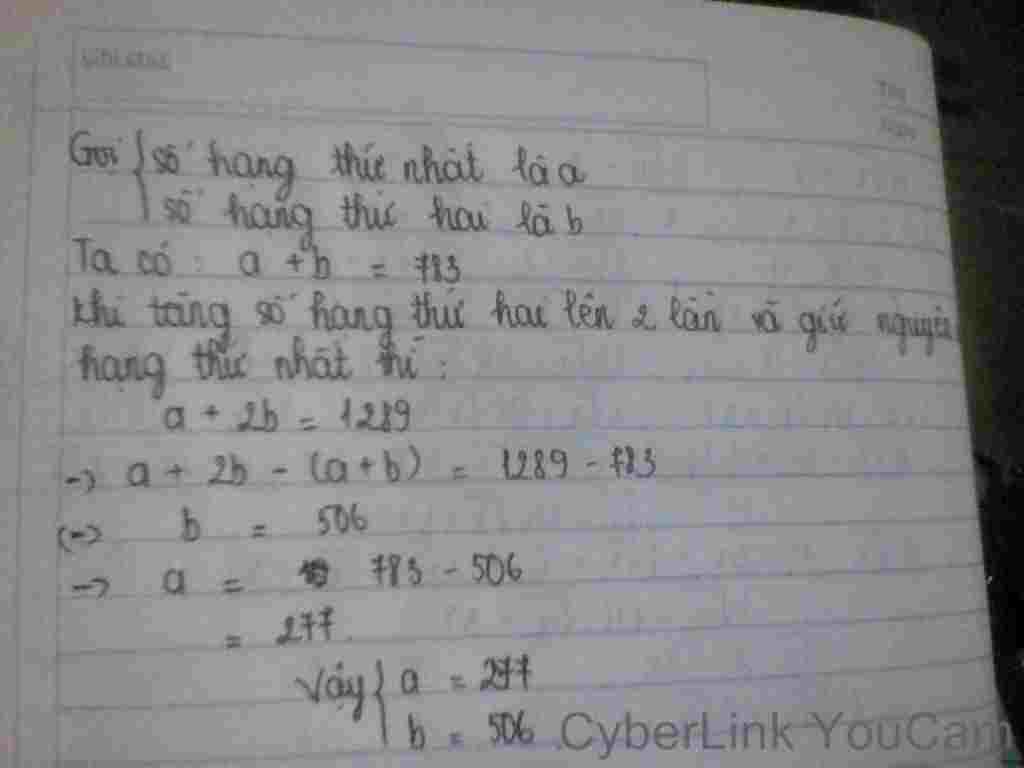 Ghi chú
Thứ
Ngày
Gọi { số hạng thứ nhất là a
số hạng thứ hai là b
Ta có : a + b = 783
Khi tăng số hạng thứ hai lên 2 lần và giữ nguyên
hạng thứ nhất thì :
a + 2b = 1289
-> a + 2b - (a+b) = 1289 - 783
<=> b = 506
-> a = 783 - 506
= 277.
Vậy { a = 277
b = 506
CyberLink YouCam